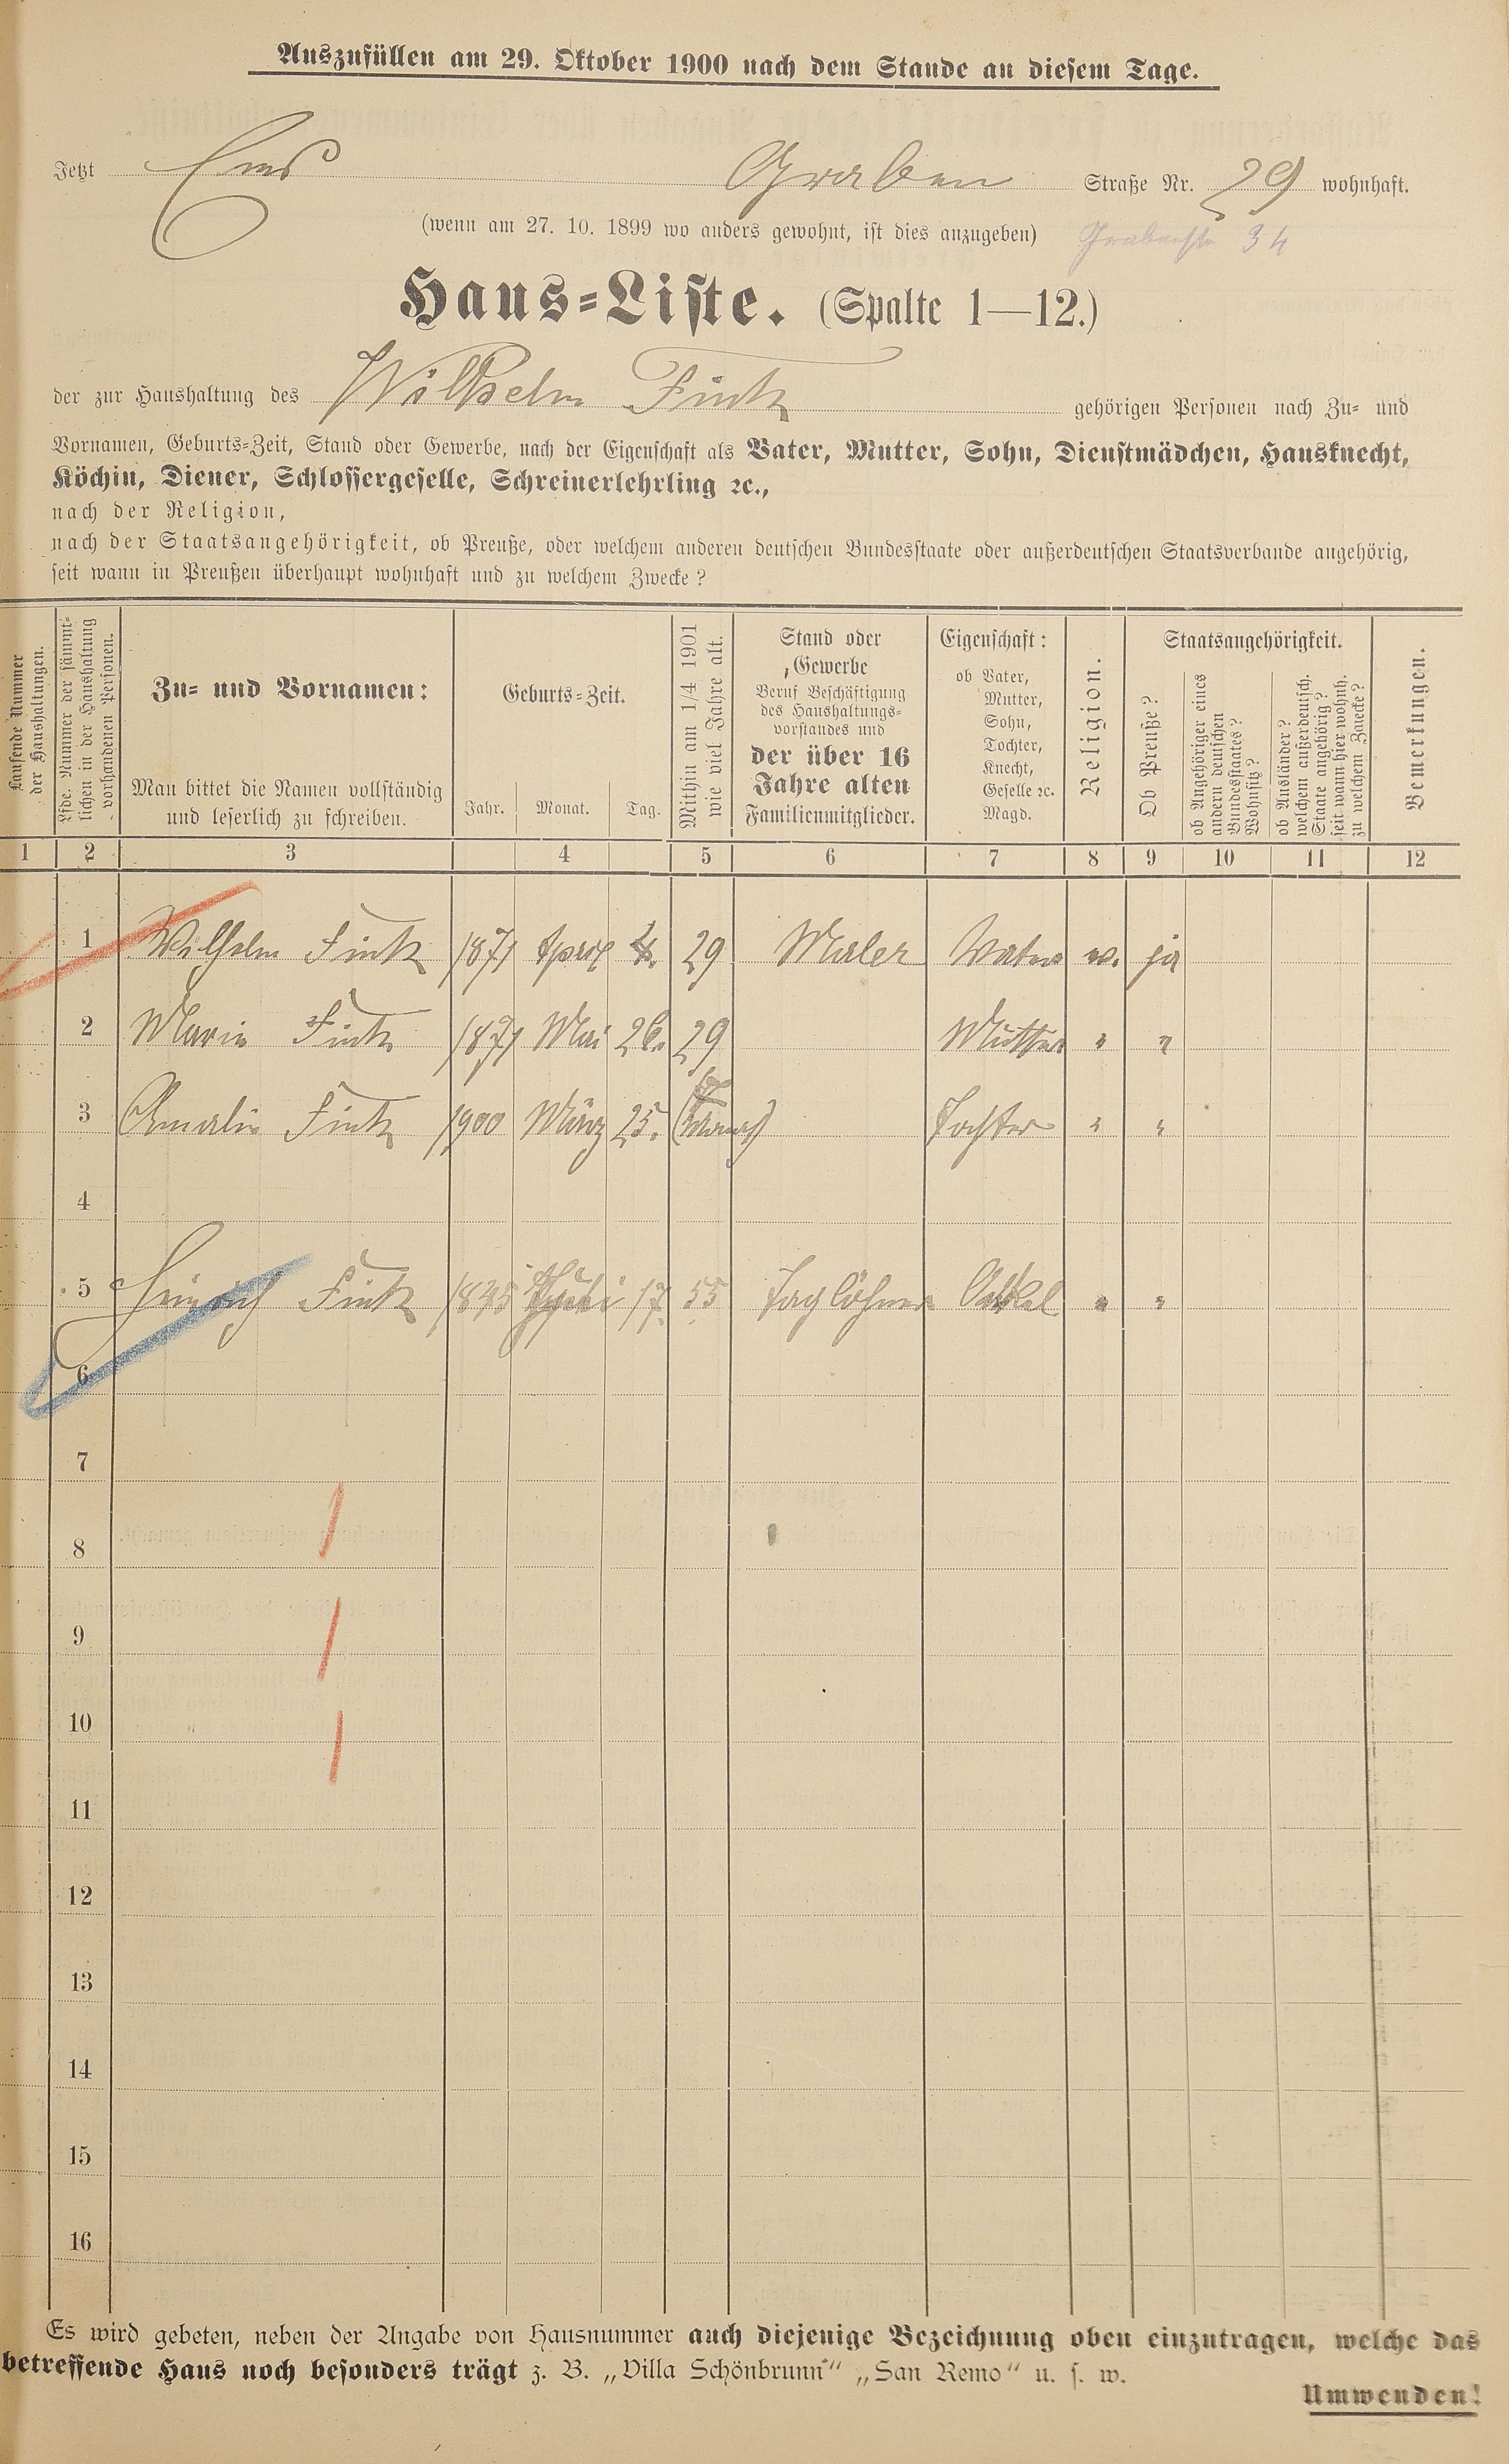 Auszufüllen am 29. Oktober 1900 nach dem Stande an diesem Tage.
Jetzt Ems Graben Straße Nr. 29 wohnhaft.
(wenn am 27. 10. 1899 wo anders gewohnt, ist dies anzugeben) Grabenstr 34
Haus-Liste. (Spalte 1—12.)
der zur Haushaltung des Wilhelm Fink gehörigen Personen nach Zu- und
Vornamen, Geburts-Zeit, Stand oder Gewerbe, nach der Eigenschaft als Vater, Mutter, Sohn, Dienstmädchen, Hausknecht,
Köchin, Diener, Schlossergeselle, Schreinerlehrling ꝛc.,
nach der Religion,
nach der Staatsangehörigkeit, ob Preuße, oder welchem anderen deutschen Bundesstaate oder außerdeutschen Staatsverbande angehörig,
seit wann in Preußen überhaupt wohnhaft und zu welchem Zwecke?
Laufende Nummer
der Haushaltungen.
Lfde. Nummer der sämmt-
lichen in der Haushaltung
vorhandenen Personen.
Zu- und Vornamen:
Man bittet die Namen vollständig
und leserlich zu schreiben.
Geburts-Zeit.
Jahr. Monat. Tag.
Mithin am 1/4 1901
wie viel Jahre alt.
Stand oder
Gewerbe
Beruf Beschäftigung
des Haushaltungs-
vorstandes und
der über 16
Jahre alten
Familienmitglieder.
Eigenschaft:
ob Vater,
Mutter,
Sohn,
Tochter,
Knecht,
Geselle ꝛc.
Magd.
Religion.
Staatsangehörigkeit.
Ob Preuße?
ob Angehöriger eines
andern deutschen
Bundesstaates?
Wohnsitz?
ob Ausländer?
welchem außerdeutsch.
Staate angehörig?
seit wann hier wohnh.
zu welchem Zwecke?
Bemerkungen.
1 2 3 4 5 6 7 8 9 10 11 12
1 Wilhelm Fink 1871 April 29 Maler Vater ja
2 Marie Fink 1871 Mai 26. 29 Mutter " "
3 Amalie Fink 1900 März 25. Tochter " "
4
5 Heinrich Fink 1845 17. 55 Taglöhner Onkel " "
6
7
8
9
10
11
12
13
14
15
16
Es wird gebeten, neben der Angabe von Hausnummer auch diejenige Bezeichnung oben einzutragen, welche das
betreffende Haus noch besonders trägt z. B. „Villa Schönbrunn“ „San Remo“ u. s. w.
Umwenden!